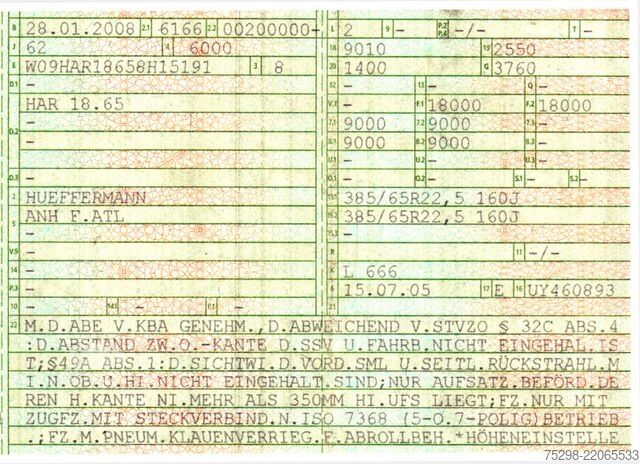 B 28.01.2008 2.1 6166 2.2 00200000- L 2 9 - P.2 P.4 -/- T -
J 62 4 6000 18 9010 19 2550
E W09HAR18658H15191 3 8 20 1400 G 3760
D.1 - 12 - 13 - Q -
HAR 18.65 V.7 - F.1 18000 F.2 18000
D.2 - 7.1 9000 7.2 9000 7.3 -
- 8.1 9000 8.2 9000 8.3 -
- U.1 - U.2 - U.3 -
D.3 - O.1 - O.2 - S.1 - S.2 -
2 HUEFFERMANN 15.1 385/65R22,5 160J
ANH F.ATL 15.2 385/65R22,5 160J
5 - 15.3 -
V.9 - R 11 -/-
14 - K L 666
P.3 - 6 15.07.05 17 E 16 UY460893
10 - 14.1 - P.1 - 21
22 M.D.ABE V.KBA GENEHM.,D.ABWEICHEND V.STVZO § 32C ABS.4
:D.ABSTAND ZW.O.-KANTE D.SSV U.FAHRB.NICHT EINGEHAL.IS
T;§49A ABS.1:D.SICHTWI.D.VORD.SML U.SEITL.RÜCKSTRAHL.M
I.N.OB.U.HI.NICHT EINGEHALT.SIND;NUR AUFSATZ.BEFÖRD.DE
REN H.KANTE NI.MEHR ALS 350MM HI.UFS LIEGT;FZ.NUR MIT
ZUGFZ.MIT STECKVERBIND.N.ISO 7368 (5-O.7-POLIG)BETRIEB
.;FZ.M.PNEUM.KLAUENVERRIEG.F.ABROLLBEH.*HÖHENEINSTELLE
75298-22065533